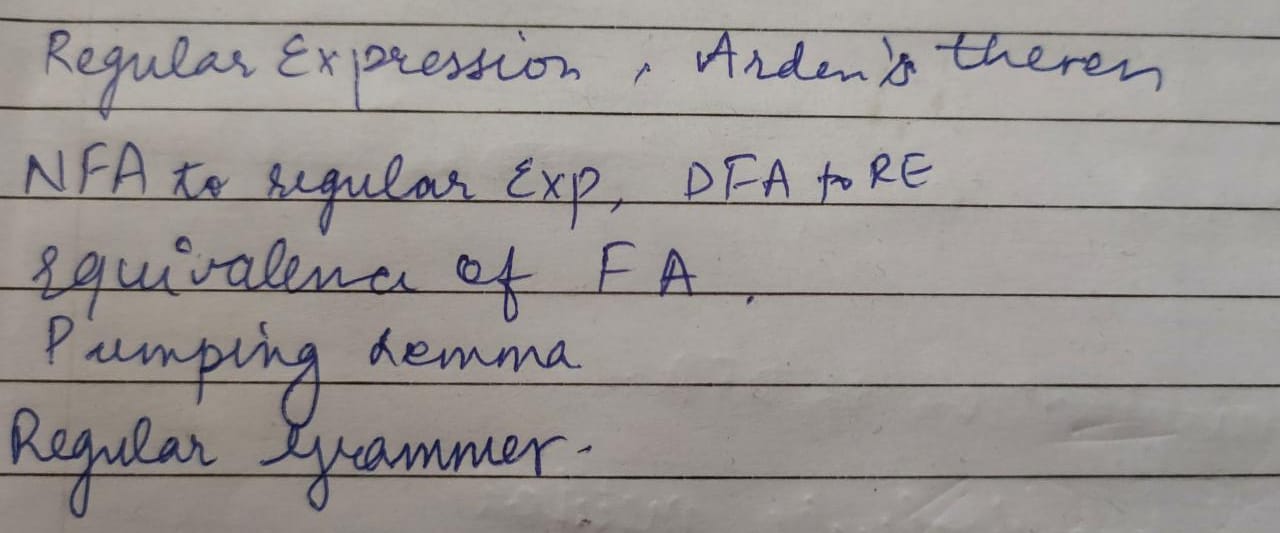 Regular Expression, Arden's theren
NFA to regular Exp, DFA to RE
equivalence of FA.
Pumping Lemma
Regular Grammer.